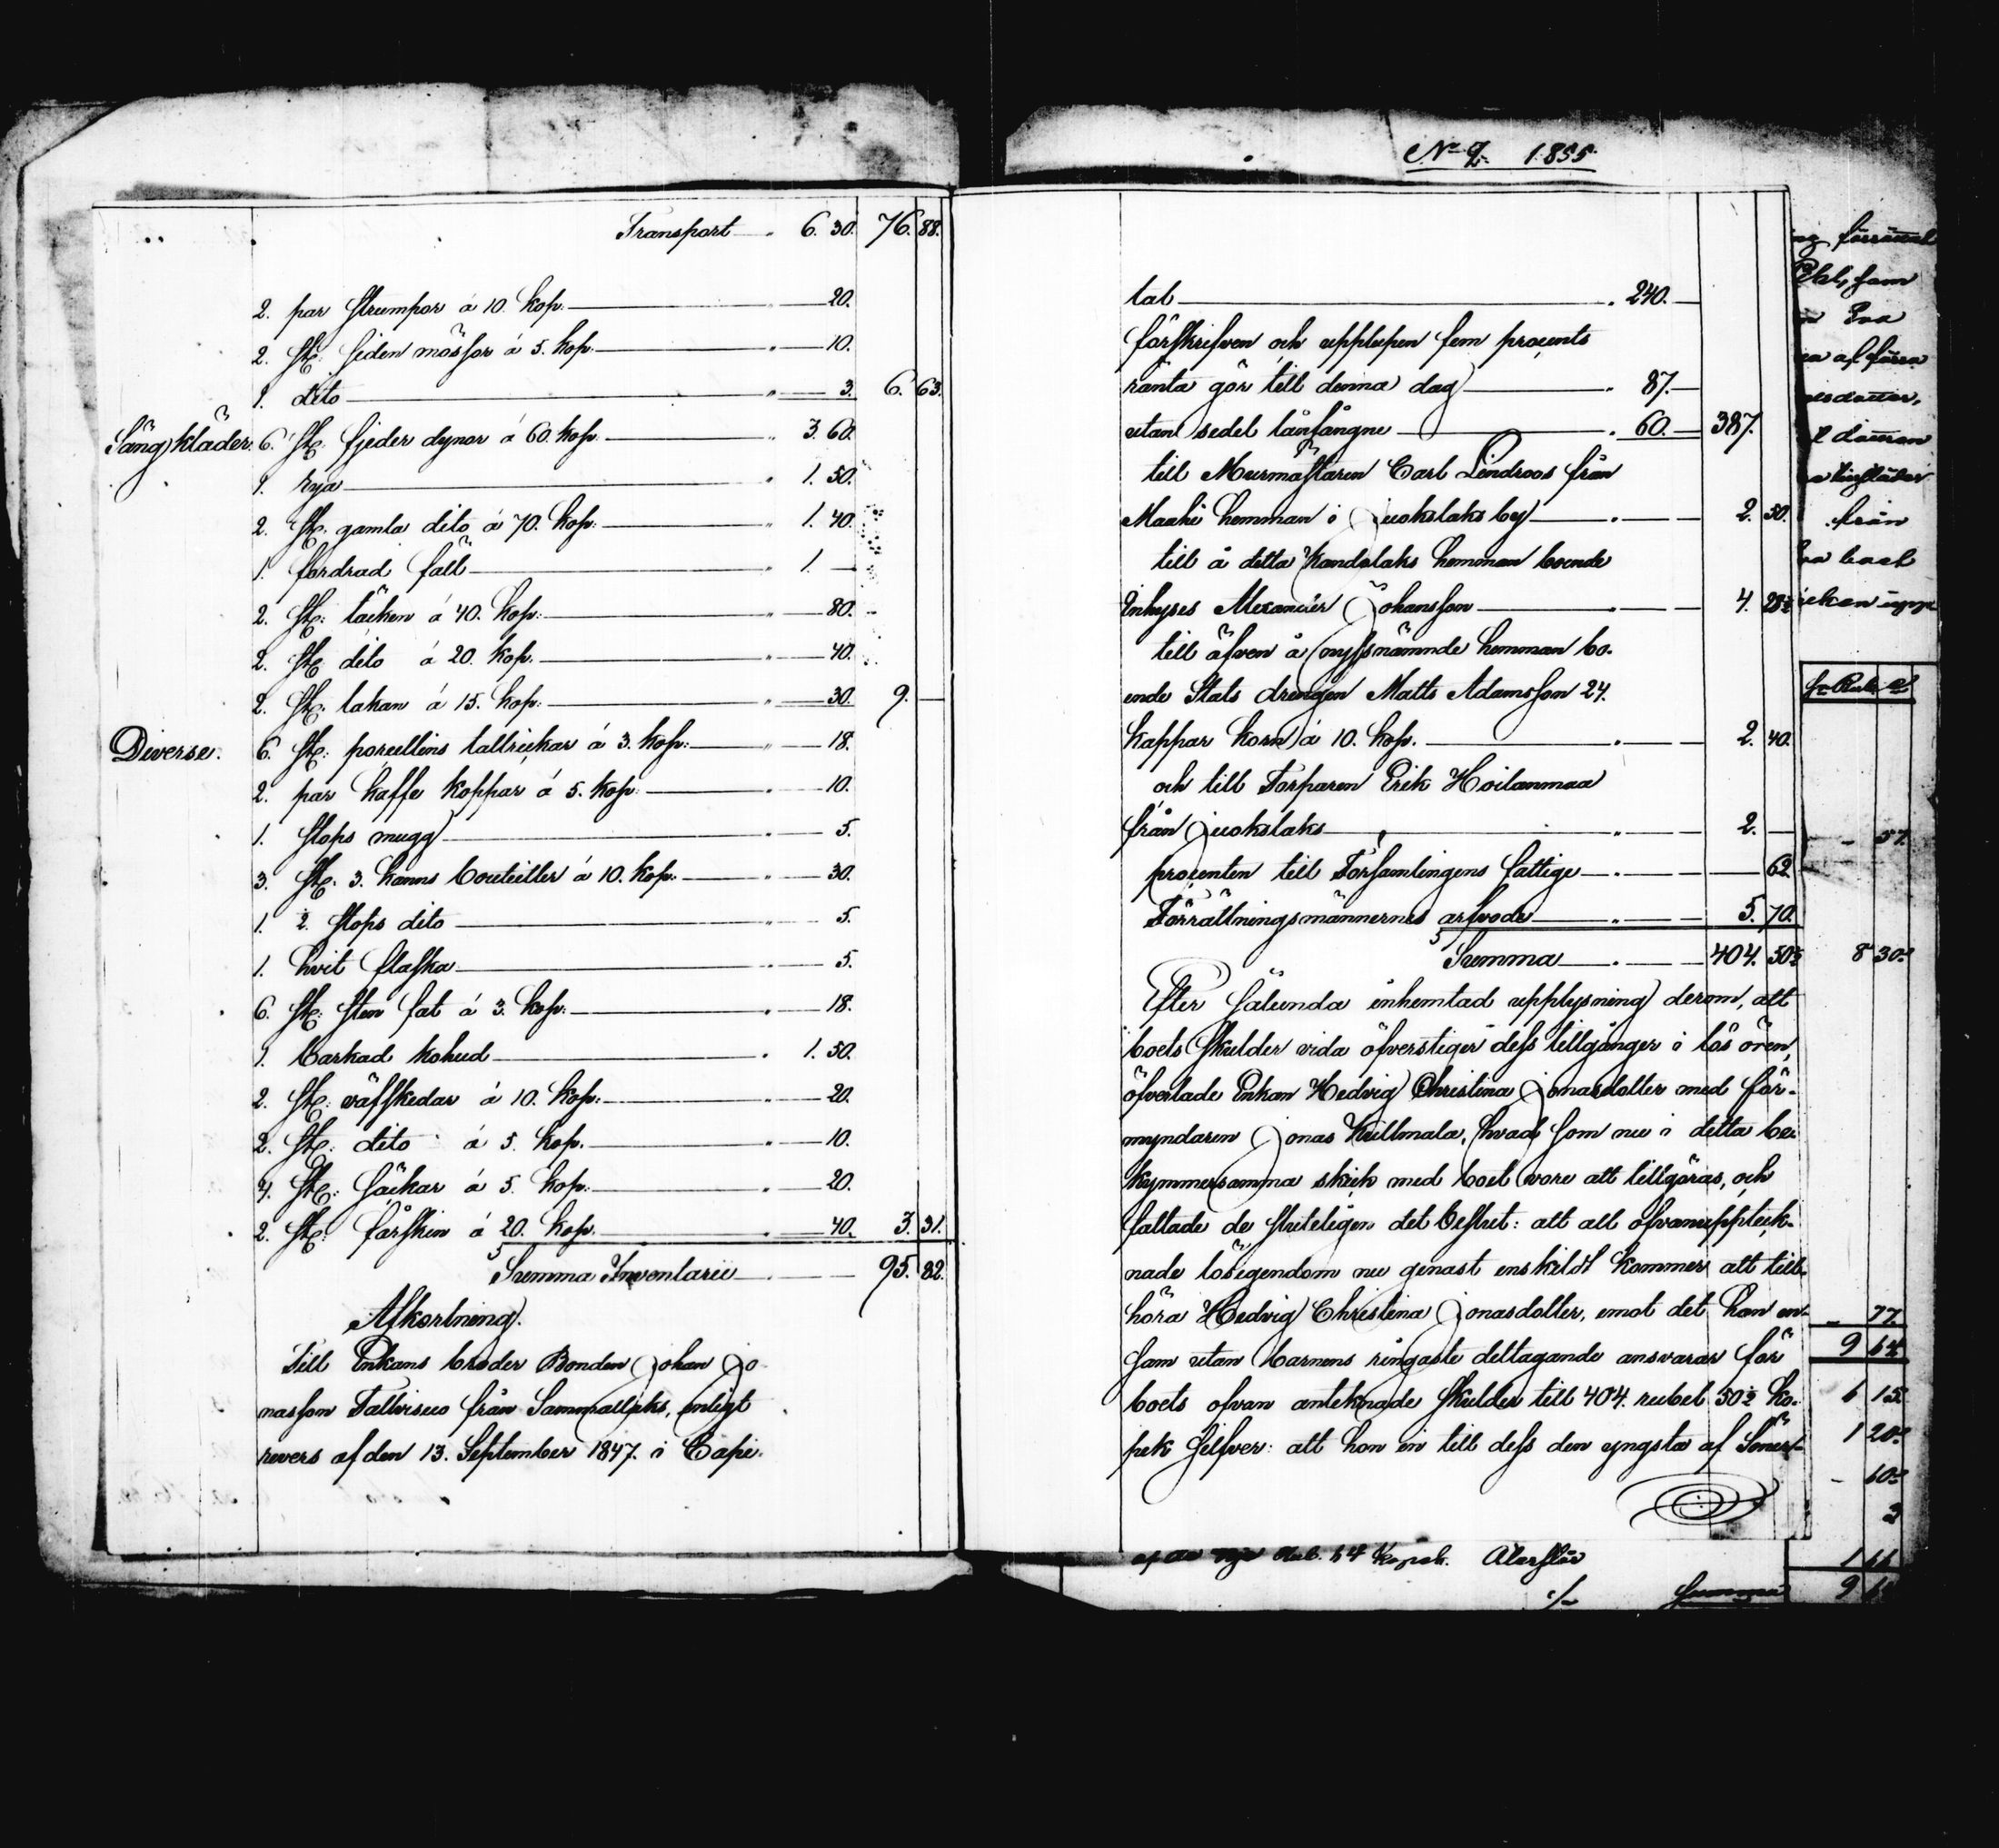 Transport — „ 6. 30. 76. 88.
2. par strumpor á 10. kop. — „ — 20.
2. st. siden mössor á 5. kop. — „ — 10.
1. dito — „ — 3. 6. 63.
Sängkläder. 6. st. fjeder dynor á 60. kop. — „ 3. 60.
1. rya — „ 1. 50.
2. st. gamla dito á 70. kop: — „ 1. 40.
1. fordrad fäll — „ 1. —
2. st: täcken á 40. kop: — „ — 80.
2. st. dito á 20. kop. — „ — 40.
2. st. lakan á 15. kop: — „ — 30. 9. —
Diverse. 6. st: porcellins tallrickar á 3. kop: — „ — 18.
2. par kaffe koppar á 5. kop: — „ — 10.
1. stops mugg — „ — 5.
3. st. 3. kanns bouteiller á 10. kop. — „ — 30.
1. 2. stops dito — „ — 5.
1. hvit flaska — „ — 5.
6. st: sten fat á 3. kop. — „ — 18.
1. barkad kohud — „ 1. 50.
2. st: väfskedar á 10. kop: — „ — 20.
2. st: dito á 5. kop. — „ — 10.
4. st: säckar á 5. kop: — „ — 20.
2. st: fårskin á 20. kop. — „ — 40. 3. 31.
Summa Inventarii — 95. 82.
Afkortning.
Till Enkans broder Bonden Johan Jo-
nasson Tallvisuo från Sammalljoks, enligt
revers af den 13. September 1847. i Capi-
No 9. 1855.
tal — „ 240. —
förskrifven och upplupen fem procents
ränta gör till denna dag — „ 87. —
utan sedel lånfångne — „ 60. — 387.
till Murmästaren Carl Lindroos från
Maahi hemman i Juokslaks by — „ — 2. 50.
till å detta Kandolaks hemman boende
Inhyses Alexander Johansson — „ — 4. 28½
till äfven å nyssnämnde hemman bo-
ende Stals drengen Matts Adamsson 24.
kappar korn á 10. kop. — „ — 2. 40.
och till Torparen Erik Hoilanmaa
från Juokslaks — „ — 2. —
procenten till Församlingens fattige — „ — 62
Förrättningsmännernes arfvode — „ — 5. 70.
Summa — „ — 404. 50½
Efter sålunda inhemtad upplysning derom, att
boets skulder vida öfverstiger dess tillgånger i lös ören,
öfverlade Enkan Hedvig Christina Jonasdotter med för-
myndaren Jonas Kullmala, hvad som nu i detta be-
kymmersamma skick med boet vore att tillgöras, och
fattade de sluteligen det beslut: att all ofvanuppteck-
nade lösegendom nu genast enskildt kommer att till-
höra Hedvig Christina Jonasdotter, emot det hon en-
sam utan barnens ringaste deltagande ansvarar för
boets ofvan antecknade skulder till 404. rubel 50½ ko-
pek silfver: att hon in till dess den yngsta af
af Kopek. Återstår
Summa
från
57.
8 30
77
9 64
6 15
1 20
60
9